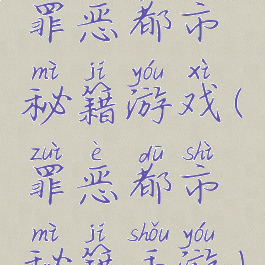 罪恶都市
mì jí yóu xì
秘籍游戏(
zuì è dū shì
罪恶都市
mì jí shǒu yóu
秘籍手游)